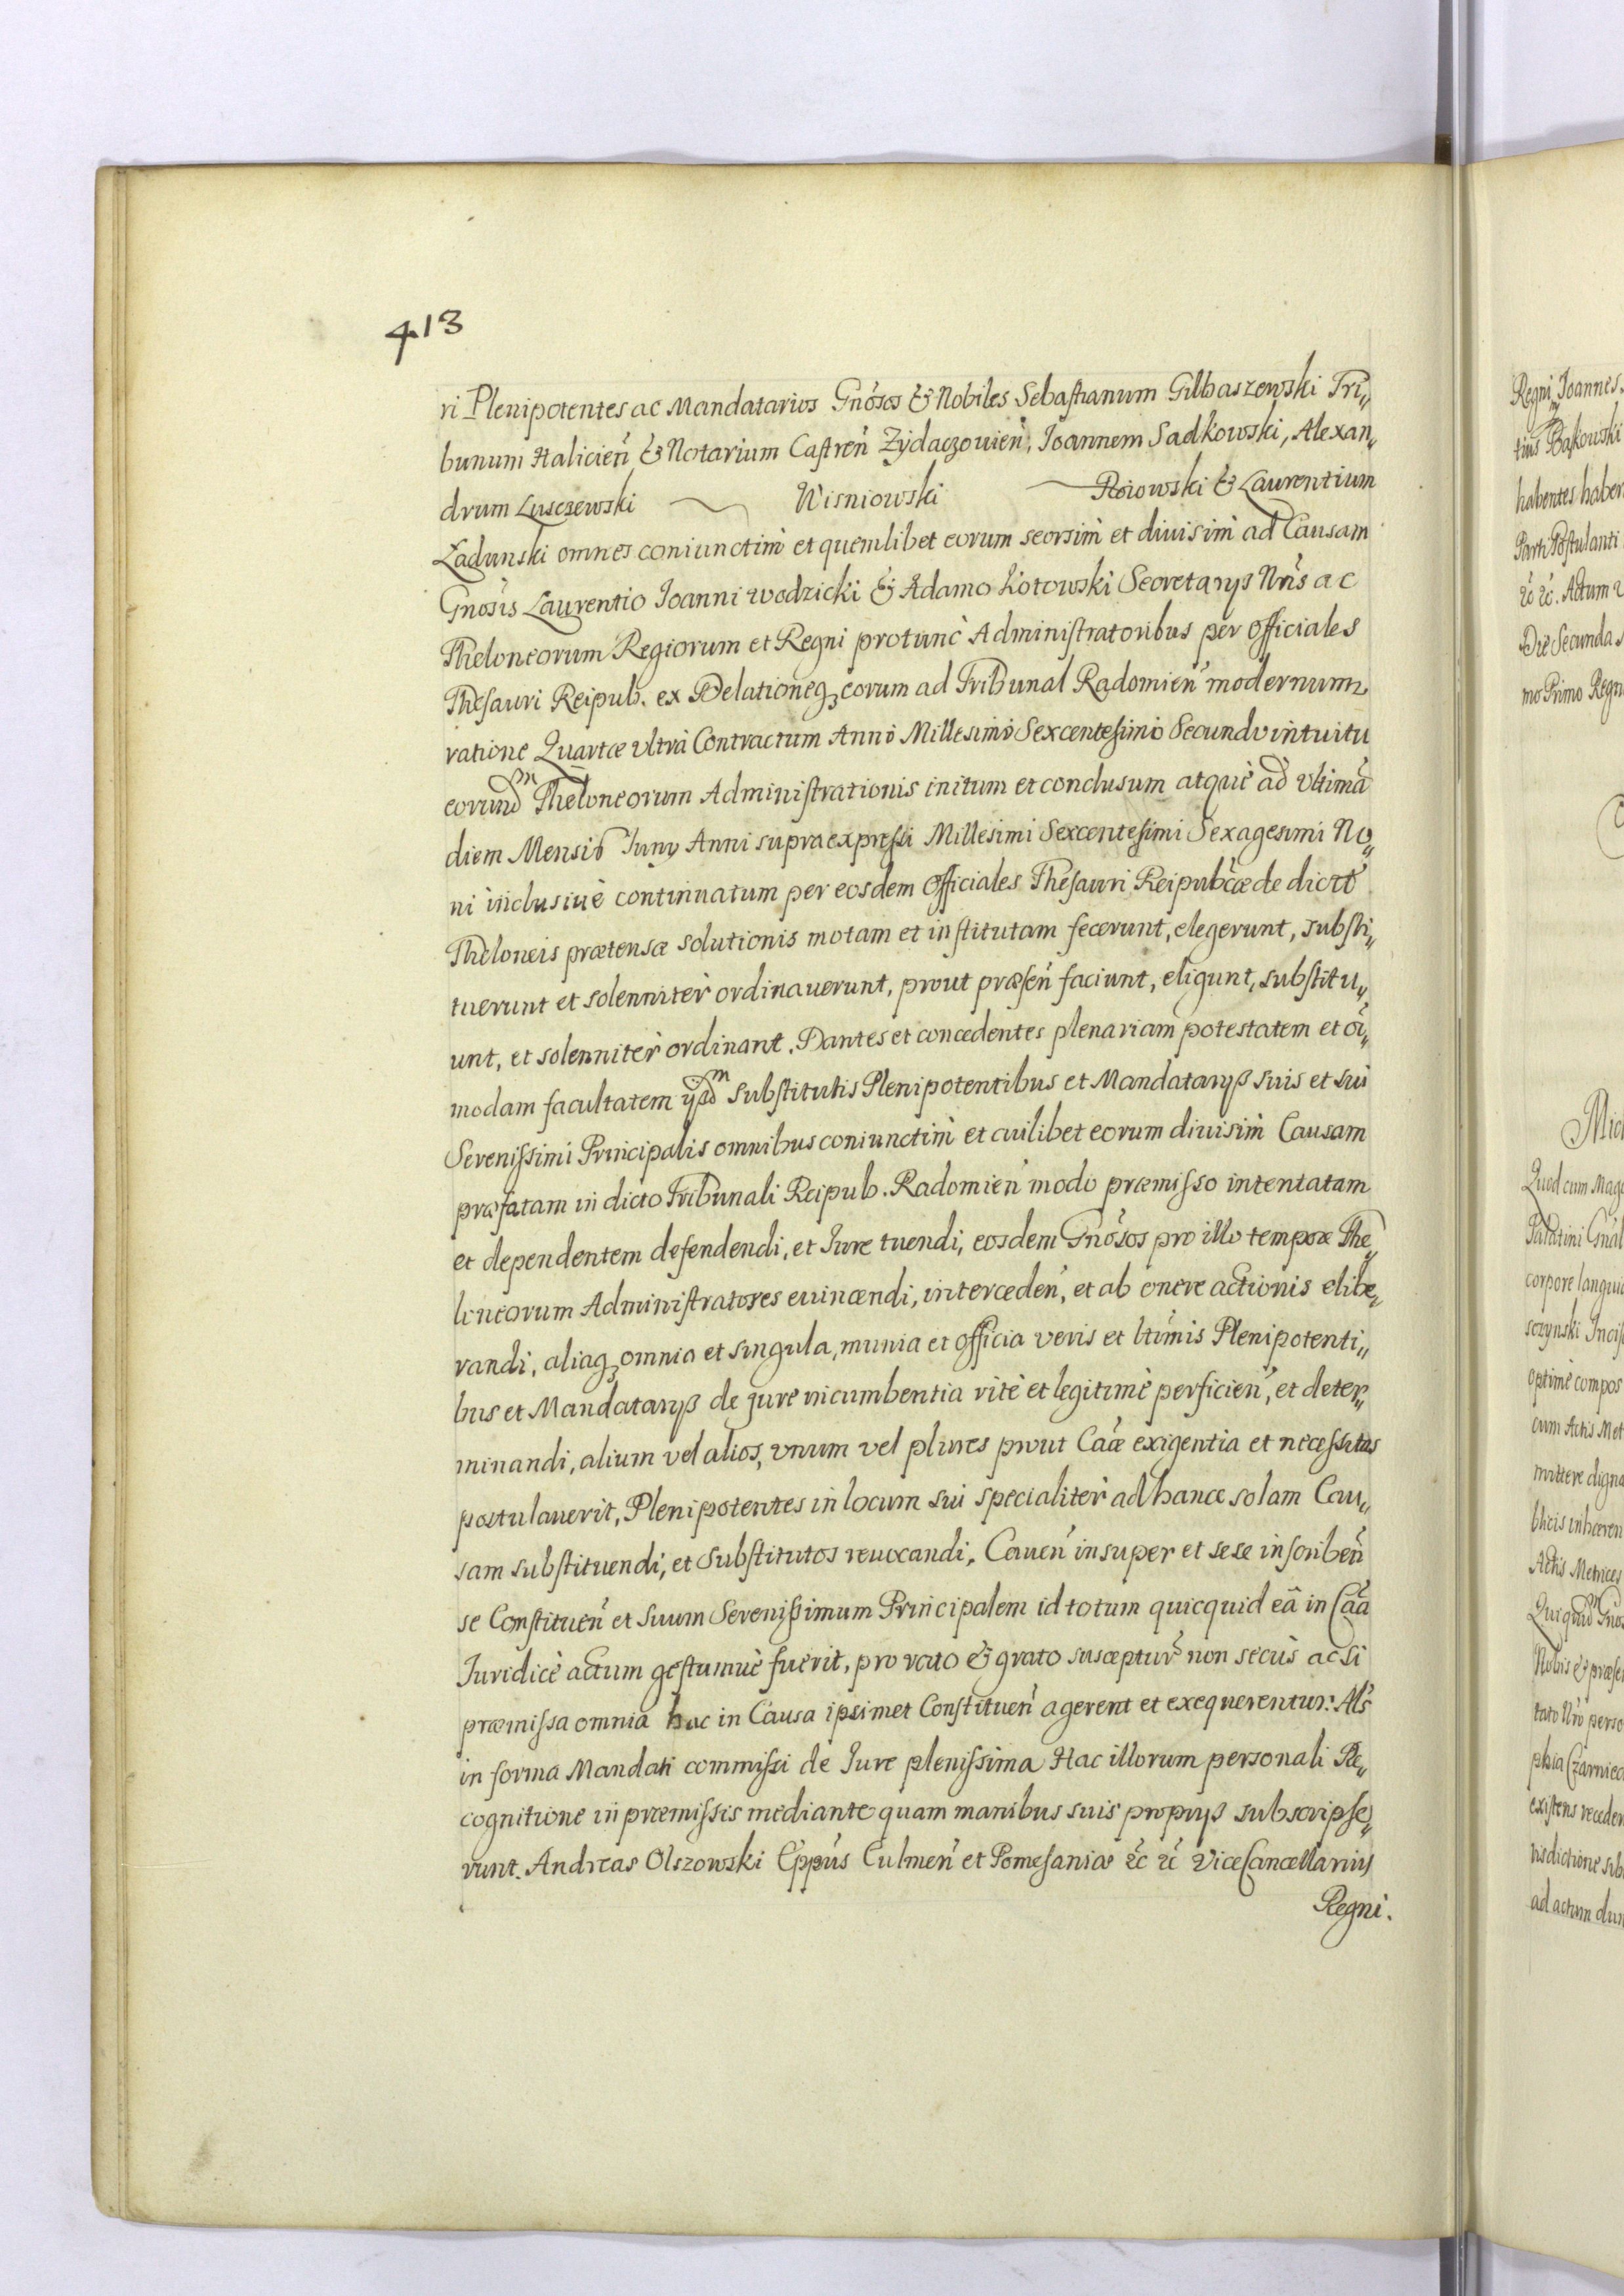 413
ri Plenipotentes ac Mandatarios Gnosos & Nobiles Sebastianum Gilbaszewski Tri„
bunum Halicień & Notarium Castreń Zydaczouień, Joannem Sadkowski, Alexan„
drum Lusczewski Wisniowski Roiowski & Laurentium
Ładunski omnes coniunctim et quemlibet eorum seorsim et diuisim ad Causam
Gnosis Laurentio Joanni wodzicki & Adamo Kotowski Secretarys Nris ac
Theloneorum Regiorum et Regni protunc Administratoribus per Officiales
Thesauri Reipub. ex Delationeq; eorum ad Tribunal Radomień modernum
ratione Quartæ vltra Contractum Anno Millesimo Sexcentesimo Secundo intuitu
eorund͂m Theloneorum Administrationis initum et conclusum atque ad vltimã
diem Mensis Juny Anni supraexpressi Millesimi Sexcentesimi Sexagesimi No„
ni inclusiue continuatum per eosdem Officiales Thesauri Reipubcæ de dictt
Theloneis prætensæ solutionis motam et institutam fecerunt, elegerunt, substi„
tuerunt et solenniter ordinauerunt, prout præseń faciunt, eligunt, substitu„
unt, et solenniter ordinant. Dantes et concedentes plenariam potestatem et oi„
modam facultatem ijsdm substitutis Plenipotentibus et Mandatarys suis et sui
Serenissimi Principalis omnibus coniunctim et cuilibet eorum diuisim Causam
præfatam in dicto Tribunali Reipub. Radomień modo præmisso intentatam
et dependentem defendendi, et Jure tuendi, eosdem Gnosos pro illo tempore The„
loneorum Administratores euincendi, intercedeń, et ab onere actionis elibe„
randi, aliaq; omnia et singula, munia et officia veris et ltimis Plenipotenti„
bus et Mandatarys de jure incumbentia rite et legitime perficień, et deter„
minandi, alium vel alios, vnum vel plures prout Caæ exigentia et necessitas
postulauerit, Plenipotentes in locum sui specialiter ad hance solam Cau„
sam substituendi, et substitutos reuocandi, Caueń insuper et sese inscribeń
se Constitueń et suum Serenissimum Principalem id totum quicquid eâ in Caã
Juridice actum gestumue fuerit, pro rato & grato suscepturˀ non secus ac si
præmissa omnia hac in Causa ipsimet Constitueń agerent et exequerentur. Als
in forma Mandati commissi de Jure plenissima Hac illorum personali Re„
cognitione in præmissis mediante quam manibus suis proprys subscripse„
runt. Andreas Olszowski Eppus Culmeń et Pomesaniæ &c &c ViceCancellarius
Regni.
Regni Joannes
habentes haben
Parti Postulanti
&c &c. Actum
Die Secunda
mo Primo Regn
Quod cum Mag
Palatini
corpore langui
optime compos
cum Actis Met
mittere digna
blicis inhæren
Actis Metrices
Nobis & præse
tato Nro perso
phia Czarniec
existens receden
risdictione sub
ad actum dun